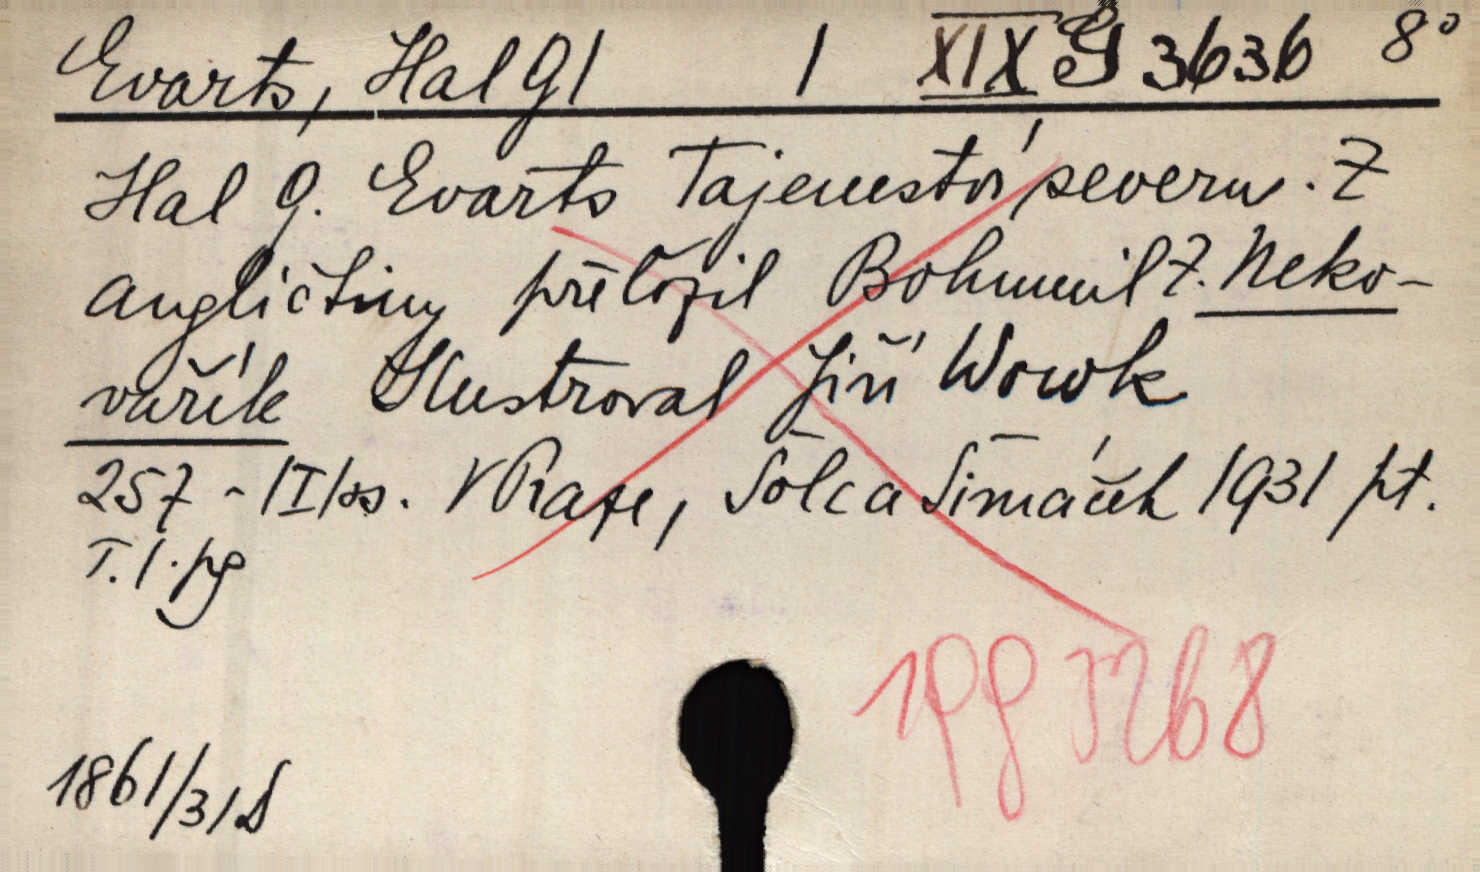 Evarts, Hal G1 1 XIX G 3636 8°
Hal G. Evarts Tajemství severu. Z
angličtiny přeložil Bohumil Z. Neko-
vařík Ilustroval Jiří Wowk
257 - /I/ ss. V Praze, Šolc a Šimáček 1931 pt.
T. 1. pg
1861/31 S